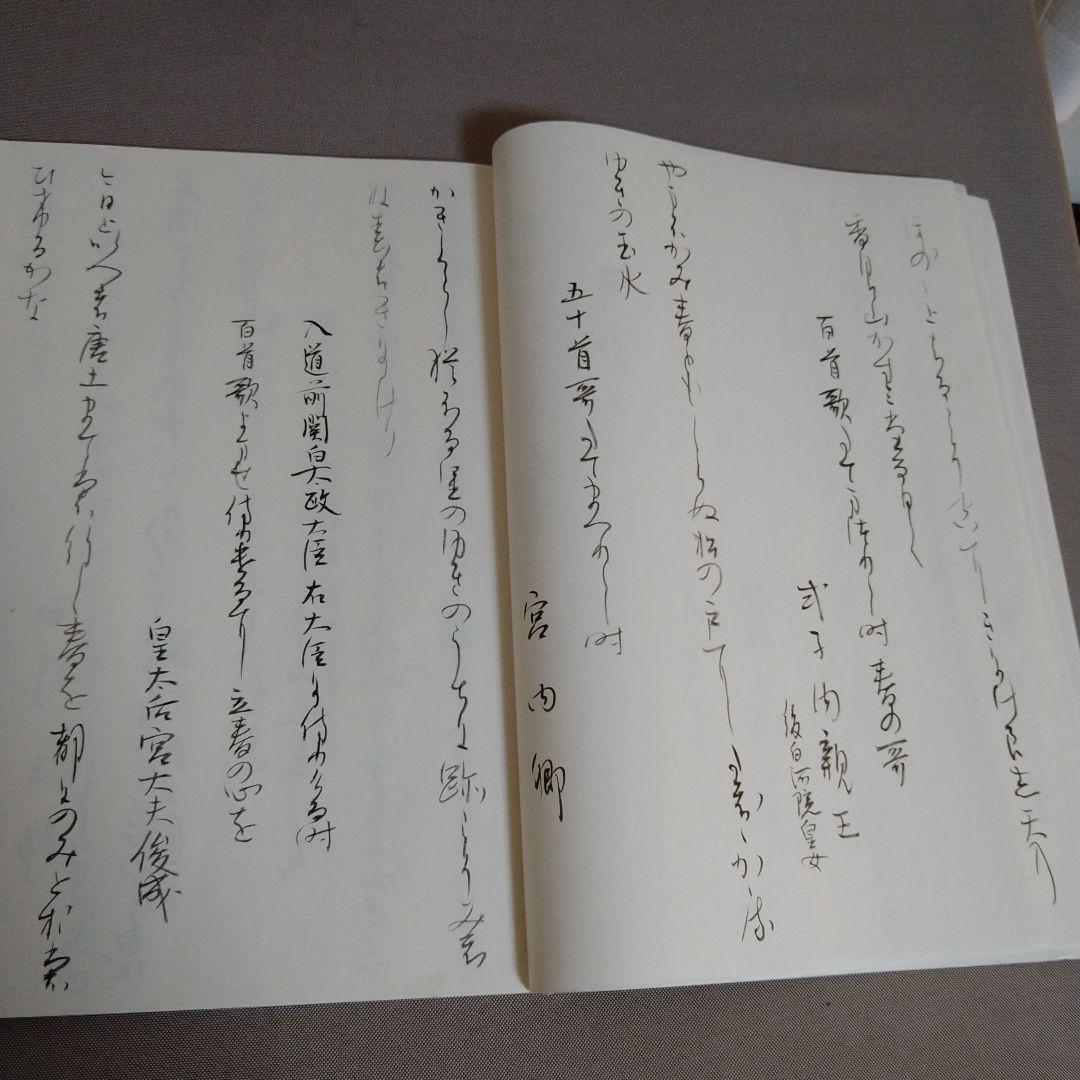 ほの〱とはるこそ空にきにけらし天乃
香具山かすみたなひく
百首歌たてまつりし時春の哥
式子内親王
後白河院皇女
やまふかみ春ともしらぬ松の戸にたえ〱かゝる
ゆきの玉水
五十首哥たてまつりし時
宮内卿
かきくらし猶ふる里のゆきのうちに跡こそみえ
ね春はきにけり
入道前関白太政大臣右大臣に侍ける時
百首歌よませ侍けるに立春の心を
皇太后宮大夫俊成
今日といへは唐土まても行春を都にのみとおも
ひけるかな